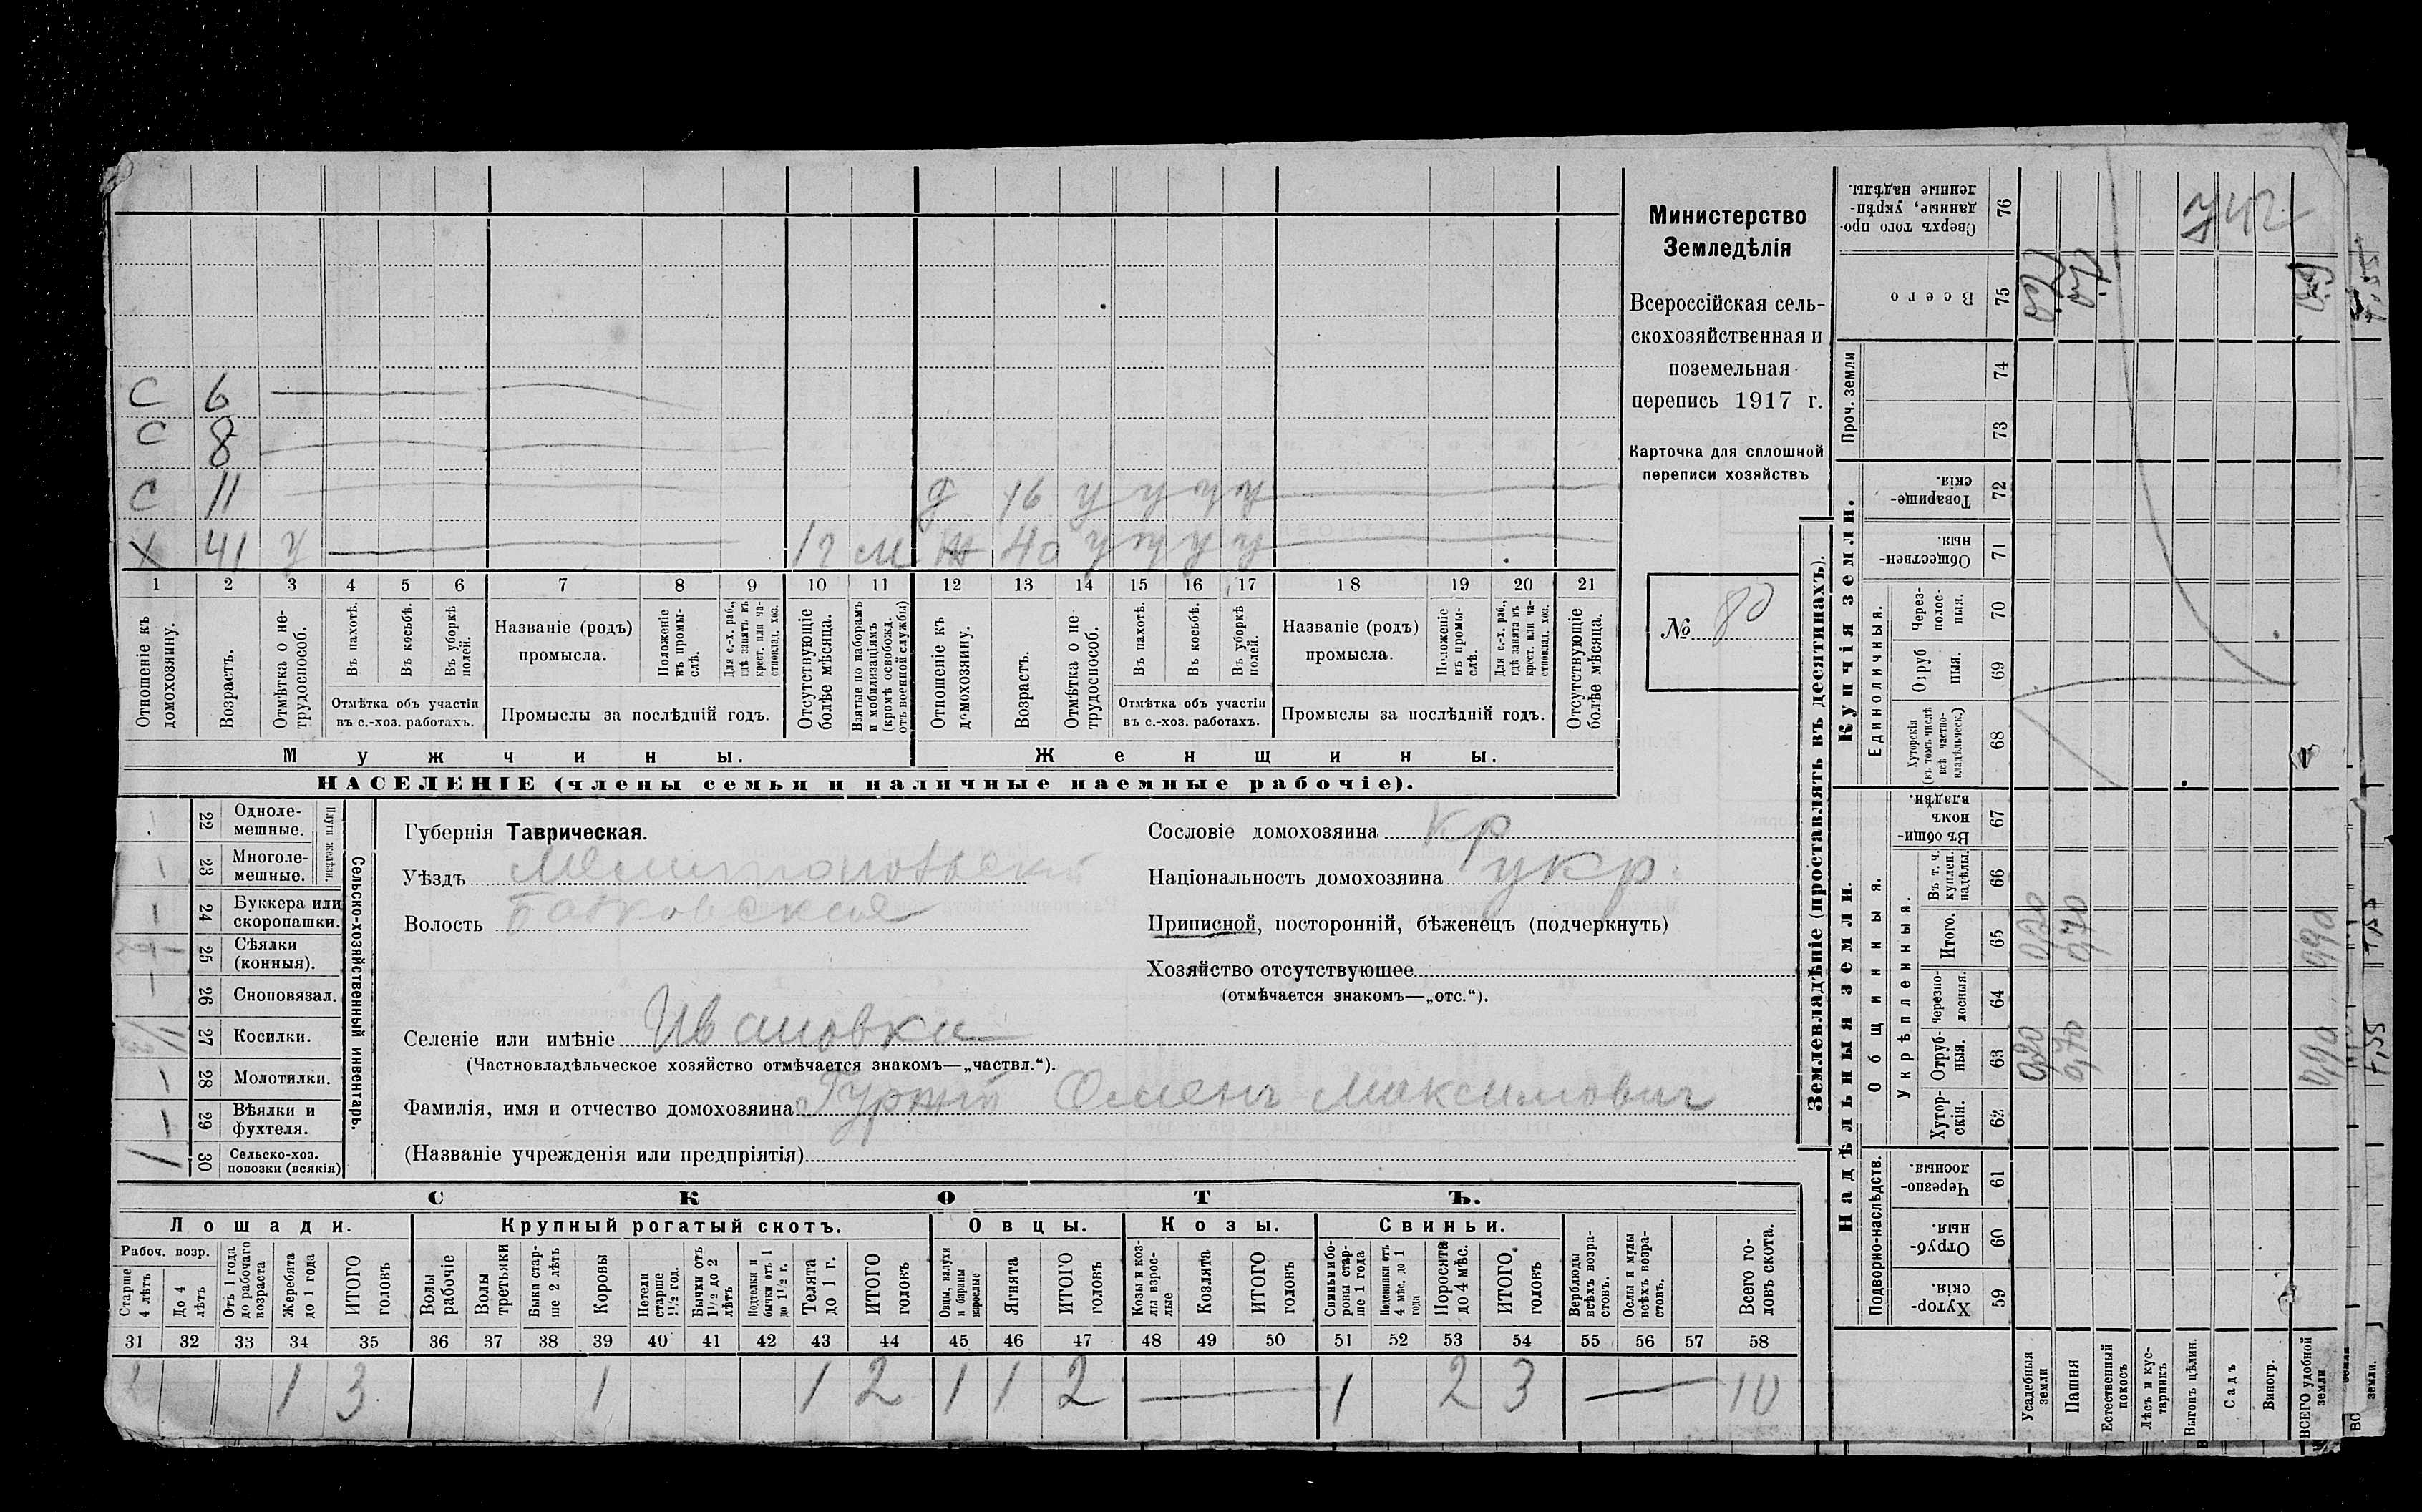 Министерство
Земледѣлія
Всероссійская сель-
скохозяйственная и
поземельная
перепись 1917 г.
Карточка для сплошной
переписи хозяйствъ
№ 80
С 6
С 8
С 11 д 16 у у у у
Х 41 у 12 м ж 40 у у у у
1 2 3 4 5 6 7 8 9 10 11 12 13 14 15 16 17 18 19 20 21
Отношеніе къ домохозяину.
Возрастъ.
Отмѣтка о не-трудоспособ.
Въ пахотѣ.
Въ косьбѣ.
Въ уборкѣ полей.
Отмѣтка объ участіи
въ с.-хоз. работахъ.
Названіе (родъ)
промысла.
Положеніе въ промы-слѣ.
Для с.-х. раб., гдѣ занятъ въ крест. или ча-стновлад. хоз.
Промыслы за послѣдній годъ.
Отсутствующіе болѣе мѣсяца.
Взятые по наборамъ и мобилизаціямъ (кромѣ освобожд. отъ военной службы)
Отношеніе къ домохозяину.
Возрастъ.
Отмѣтка о не трудоспособ.
Въ пахотѣ.
Въ косьбѣ.
Въ уборкѣ полей.
Отмѣтка объ участіи
въ с.-хоз. работахъ.
Названіе (родъ)
промысла.
Положеніе въ промы-слѣ.
Для с.-х. раб., гдѣ занята въ крест. или ча-стновлад. хоз.
Промыслы за послѣдній годъ.
Отсутствующіе болѣе мѣсяца.
Мужчины. Женщины.
НАСЕЛЕНІЕ (члены семьи и наличные наемные рабочіе).
22 Одноле-мешные.
23 Многоле-мешные.
Плуги желѣзн.
24 Буккера или скоропашки.
25 Сѣялки (конныя).
26 Сноповязал.
27 Косилки.
28 Молотилки.
29 Вѣялки и фухтеля.
30 Сельско-хоз. повозки (всякія)
Сельско-хозяйственный инвентарь.
Губернія Таврическая.
Уѣздъ Мелитопольскій
Волость
Селеніе или имѣніе Ивановка
(Частновладѣльческое хозяйство отмѣчается знакомъ—„частвл.“).
Фамилія, имя и отчество домохозяина Гуржій Семенъ Максимович
(Названіе учрежденія или предпріятія)
Сословіе домохозяина кр
Національность домохозяина укр.
Приписной, посторонній, бѣженецъ (подчеркнуть)
Хозяйство отсутствующее
(отмѣчается знакомъ—„отс.“).
СКОТЪ.
Лошади. Крупный рогатый скотъ. Овцы. Козы. Свиньи.
Рабоч. возр.
Старше 4 лѣтъ
До 4 лѣтъ
Отъ 1 года до рабочаго возраста
Жеребята до 1 года
ИТОГО головъ
Волы рабочіе
Волы третьяки
Быки стар-ше 2 лѣтъ
Коровы
Нетели старше 1½ год.
Бычки отъ 1½ до 2 лѣтъ
Подтелки и бычки отъ 1 до 1½ г.
Телята до 1 г.
ИТОГО головъ
Овцы, валухи и бараны взрослые
Ягнята
ИТОГО головъ
Козы и коз-лы взрос-лые
Козлята
ИТОГО головъ
Свиньи и бо-ровы стар-ше 1 года
Подсвинки отъ 4 мѣс. до 1 года
Поросята до 4 мѣс.
ИТОГО головъ
Верблюды всѣхъ возра-стовъ.
Ослы и мулы всѣхъ возра-стовъ.
Всего го-ловъ скота.
31 32 33 34 35 36 37 38 39 40 41 42 43 44 45 46 47 48 49 50 51 52 53 54 55 56 57 58
1 3 1 1 2 1 1 2 1 2 3 10
Землевладѣніе (проставлять въ десятинахъ).
Надѣльныя земли.
Купчія земли.
Проч. земли
Подворно-наслѣдств.
Общинныя.
Укрѣпленныя.
Единоличныя.
Хутор-скія. 59
Отруб-ныя. 60
Черезпо-лосныя. 61
Хутор-скія. 62
Отруб-ныя. 63
Черезпо-лосныя. 64
Итого. 65
Въ т. ч. куплен. надѣлы. 66
Въ общин-номъ владѣн. 67
Хуторскія (въ томъ числѣ всѣ частно-владѣльческ.) 68
Отрубныя. 69
Через-полос-ныя. 70
Обществен-ныя. 71
Товарище-скія. 72
73
74
Всего 75
Сверхъ того про-данные, укрѣп-ленные надѣлы. 76
Усадебныя земли 0,20 0,20
Пашня 0,70 0,70
Естественный покосъ
Лѣсъ и кус-тарникъ
Выгонъ цѣлин.
Садъ
Виногр.
ВСЕГО удобной земли 0,90 0,90
земли.